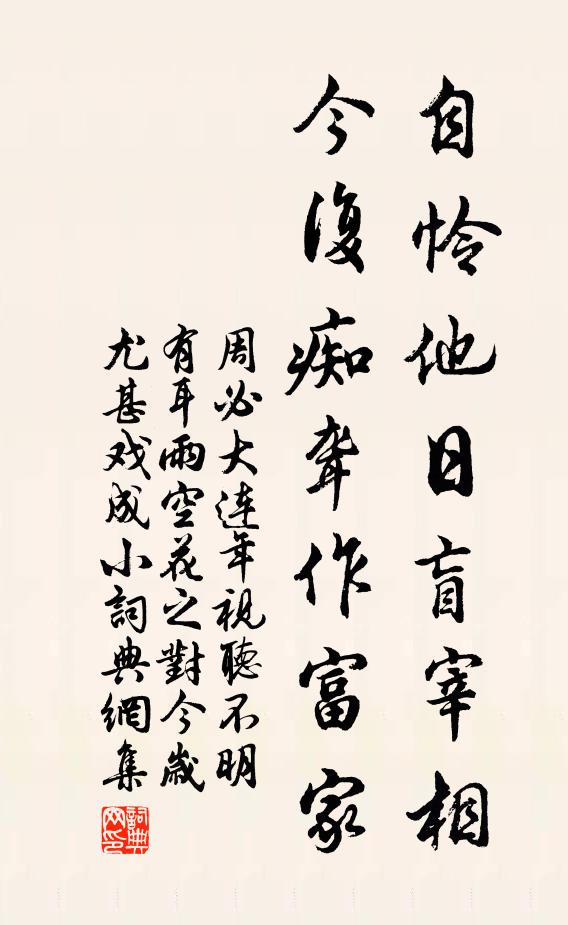 自怜他日盲宰相
今復痴聋作富家
周必大連年視聽不明
有耳雨空花之對今歲
尤甚戏成小詞典網集
詞典網印